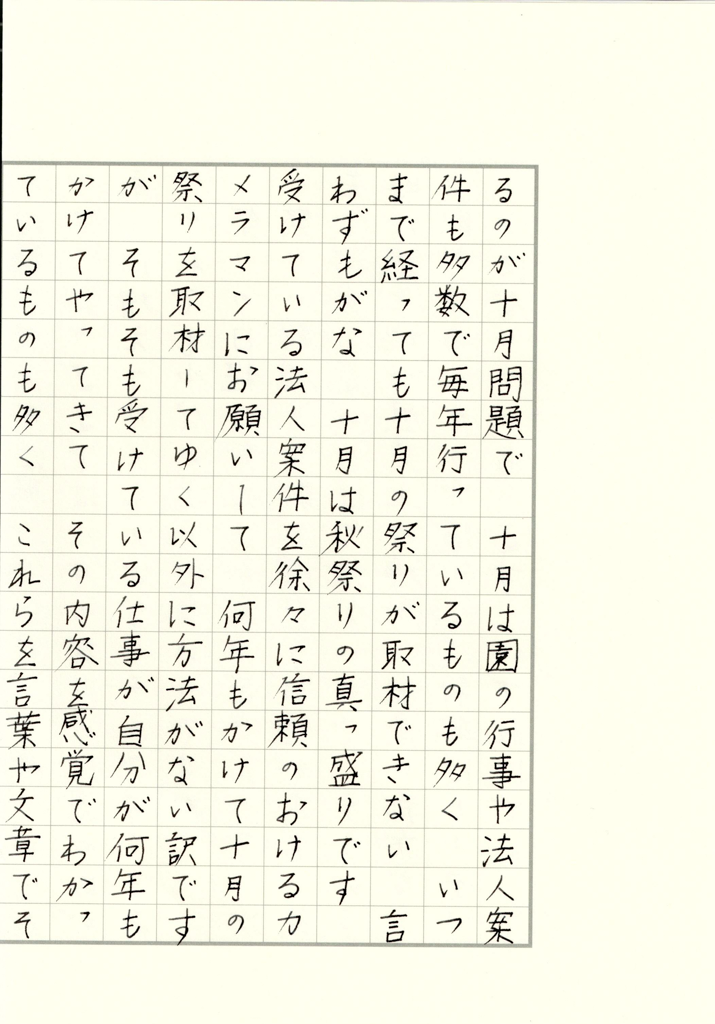 るのが十月問題で　十月は園の行事や法人案
件も多数で毎年行っているものも多く　いつ
まで経っても十月の祭りが取材できない　言
わずもがな　十月は秋祭りの真っ盛りです
受けている法人案件を徐々に信頼のおけるカ
メラマンにお願いして　何年もかけて十月の
祭りを取材してゆく以外に方法がない訳です
が　そもそも受けている仕事が自分が何年も
かけてやってきて　その内容を感覚でわかっ
ているものも多く　これらを言葉や文章でそ